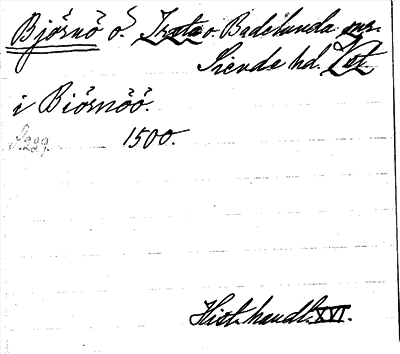 Björnö ö. Irsta o. Badelunda snr.
Siende hd. Vstm.
i Biörnöö.
S. 229. 1500.
Hist. handl. XVI.